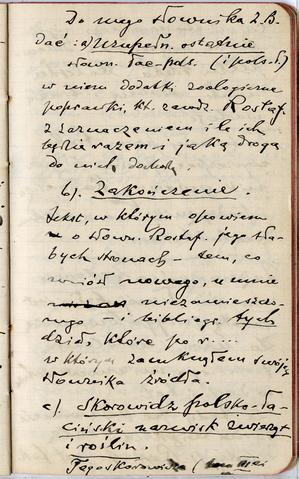 Do mego słownika L. B.
dać: a) Uzupełn. ostatnie
słown. łac-pols. (i pols-ł)
w niem dodatki zoologiczne
poprawki, kt. zawdz. Rostaf.
z zaznaczeniem ile ich
będzie razem i jaką drogą
do nich doszła.
b). Zakończenie.
tekst, w którym opowiem
o słown. Rostaf. jego sła-
bych stronach – tem, co
wniósł nowego, u mnie
niezamieszczo-
nego – i bibliogr. tych
dzieł, które po r....
w którym zamknąłem swojej
słownika źródła.
c). Skorowidz polsko-ła-
ciński nazwisk zwierząt
i roślin.
Jego skorowidz (